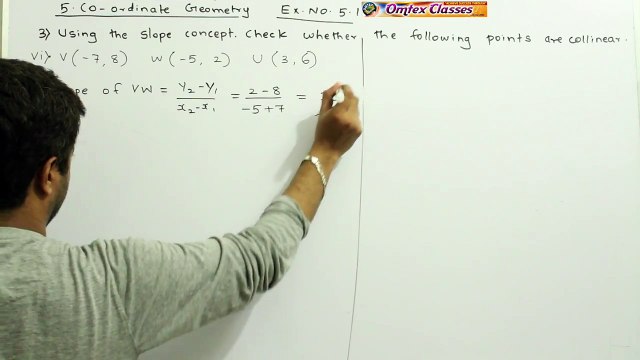 5. CO-ordinate Geometry Ex. No. 5.1
Omtex Classes
3) Using the slope concept. Check whether the following points are collinear.
vi) V (-7, 8) W (-5, 2) U (3, 6)
of VW = y₂-y₁ / x₂-x₁ = 2-8 / -5+7 =